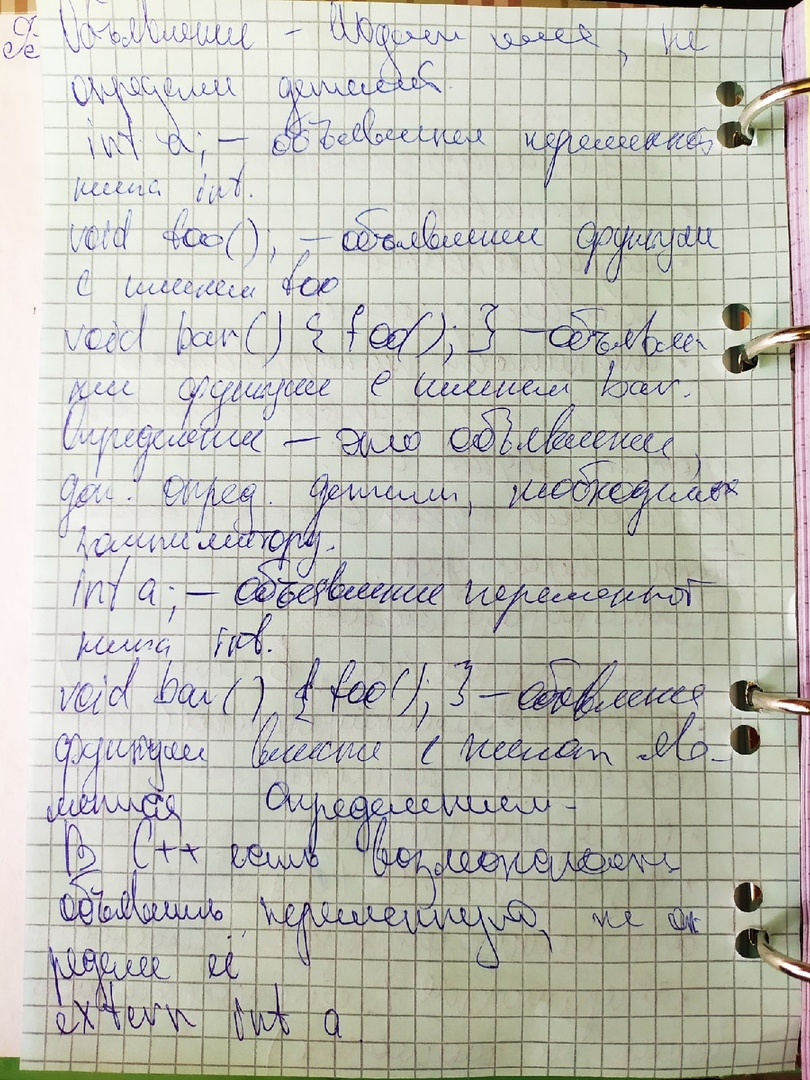 Объявление - Вводит имя, не
определяя деталей.
int a; - объявление переменной
типа int.
void foo(); - объявление функции
с именем foo
void bar() { foo(); } - объявле
ние функции с именем bar.
Определение - это объявление,
доп. опред. детали, необходимые
компилятору.
int a; - объявление переменной
типа int.
void bar() { foo(); } - объявление
функции вместе с
определением.
В C++ есть возможность
объявить переменную, не оп
ределяя её
extern int a